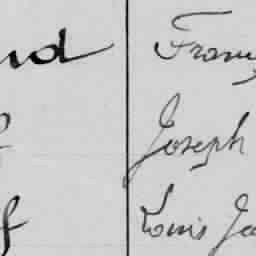 nd Franz
f Joseph
f Louis Ja